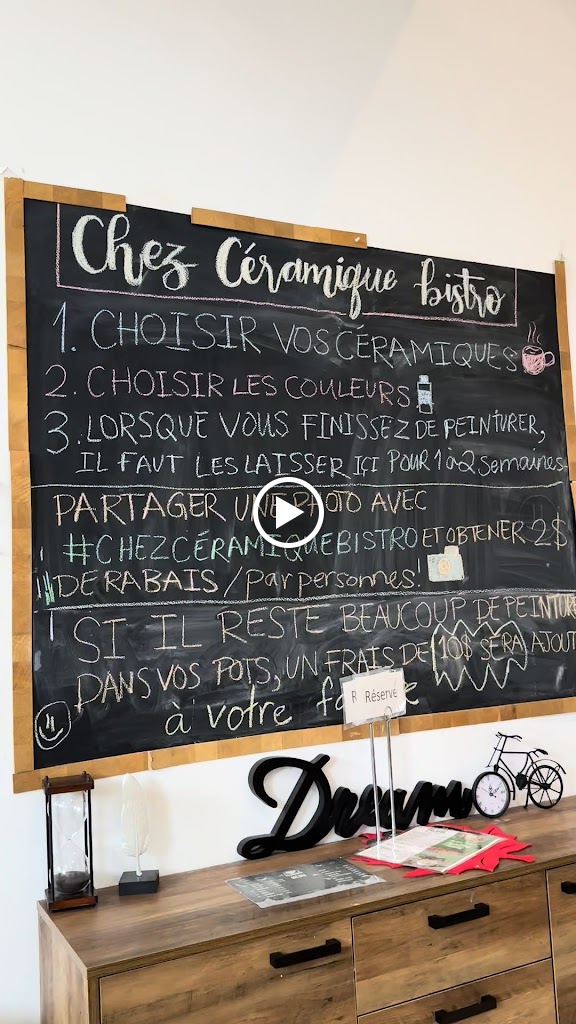 Chez Céramique bistro
1. CHOISIR VOS CÉRAMIQUES
2. CHOISIR LES COULEURS
3. LORSQUE VOUS FINISSEZ DE PEINTURER,
IL FAUT LES LAISSER IÇI POUR 1 à 2 semaines
PARTAGER UNE PHOTO AVEC
#CHEZCÉRAMIQUEBISTRO ET OBTENER 2$
DE RABAIS / par personnes!
SI IL RESTE BEAUCOUP DE PEINTURE
DANS VOS POTS, UN FRAIS DE 10$ SERA AJOUT
à votre
R Réservé
Dream